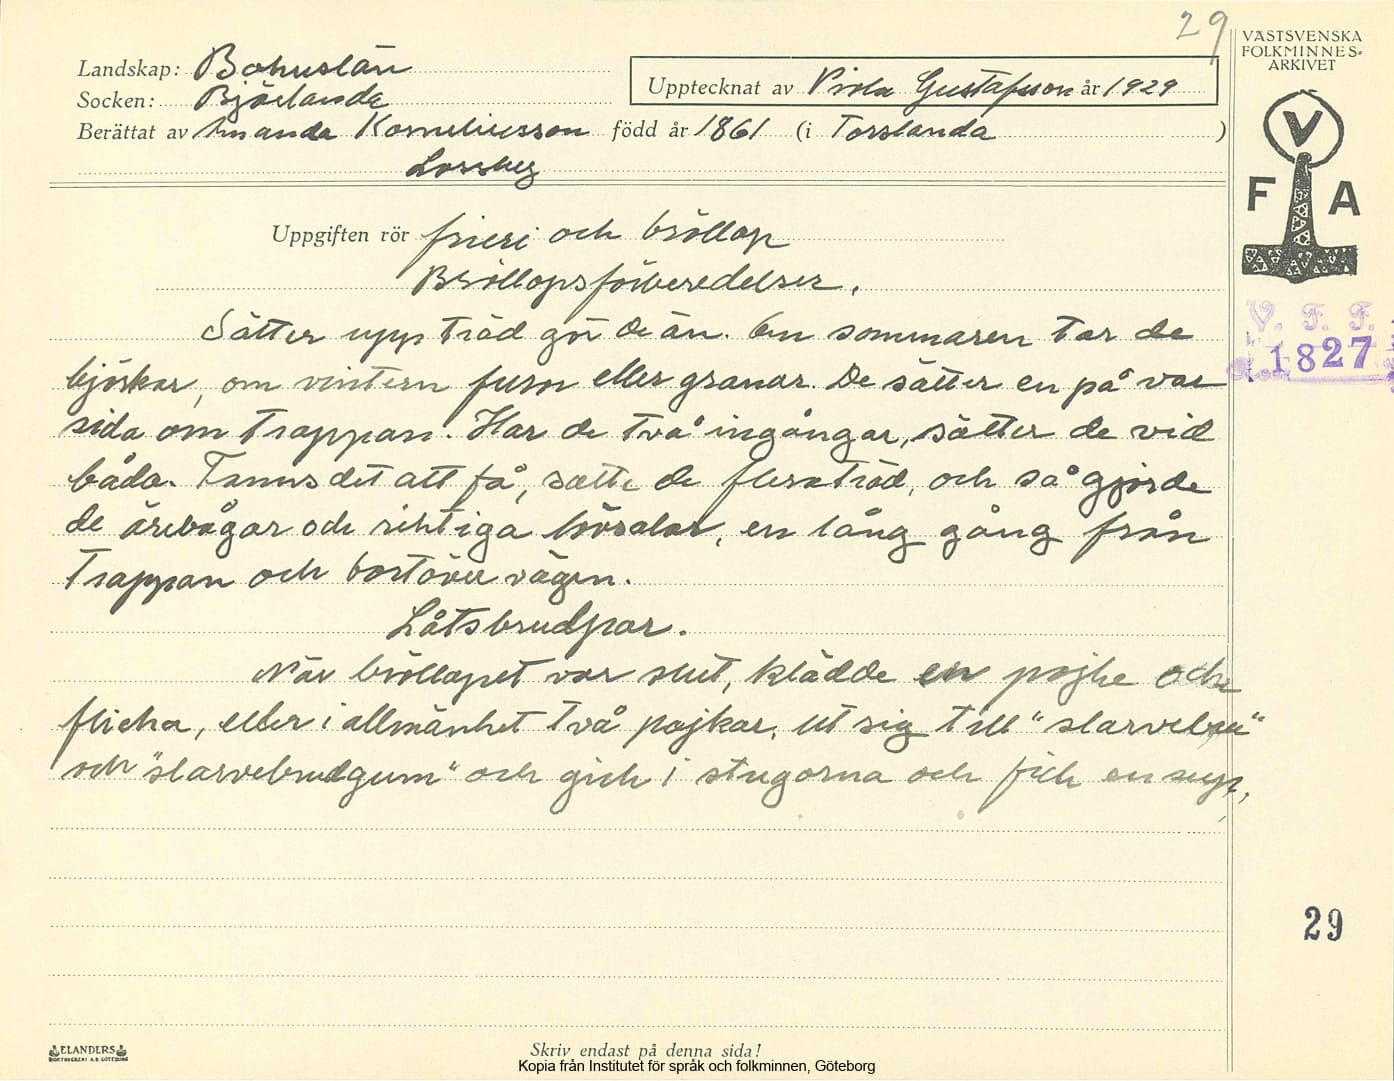 29
VÄSTSVENSKA
FOLKMINNES-
ARKIVET
Landskap: Bohuslän
Upptecknat av Viola Gustafsson år 1929
Socken: Björlanda
Berättat av Amanda Korneliusson född år 1861 (i Torslanda )
V
F A
Uppgiften rör frieri och bröllop
Bröllopsförberedelser.
V. F. F.
1827
Sätter upp träd gör de än. Om sommaren tar de
björkar, om vintern furor eller granar. De sätter en på var
sida om trappan. Har de två ingångar, sätter de vid
båda. Fanns det att få, satte de flera träd, och så gjorde
de ärebågar och riktiga lövsalar, en lång gång från
trappan och bortöver vägen.
Låtsbrudpar.
När bröllopet var slut, klädde en pojke och
flicka, eller i allmänhet två pojkar, ut sig till "slarvebru"
och "slarvebrudgum" och gick i stugorna och fick en sup,
29
ELANDERS
BOKTRYCKERI A.B. GÖTEBORG
Skriv endast på denna sida!
Kopia från Institutet för språk och folkminnen, Göteborg